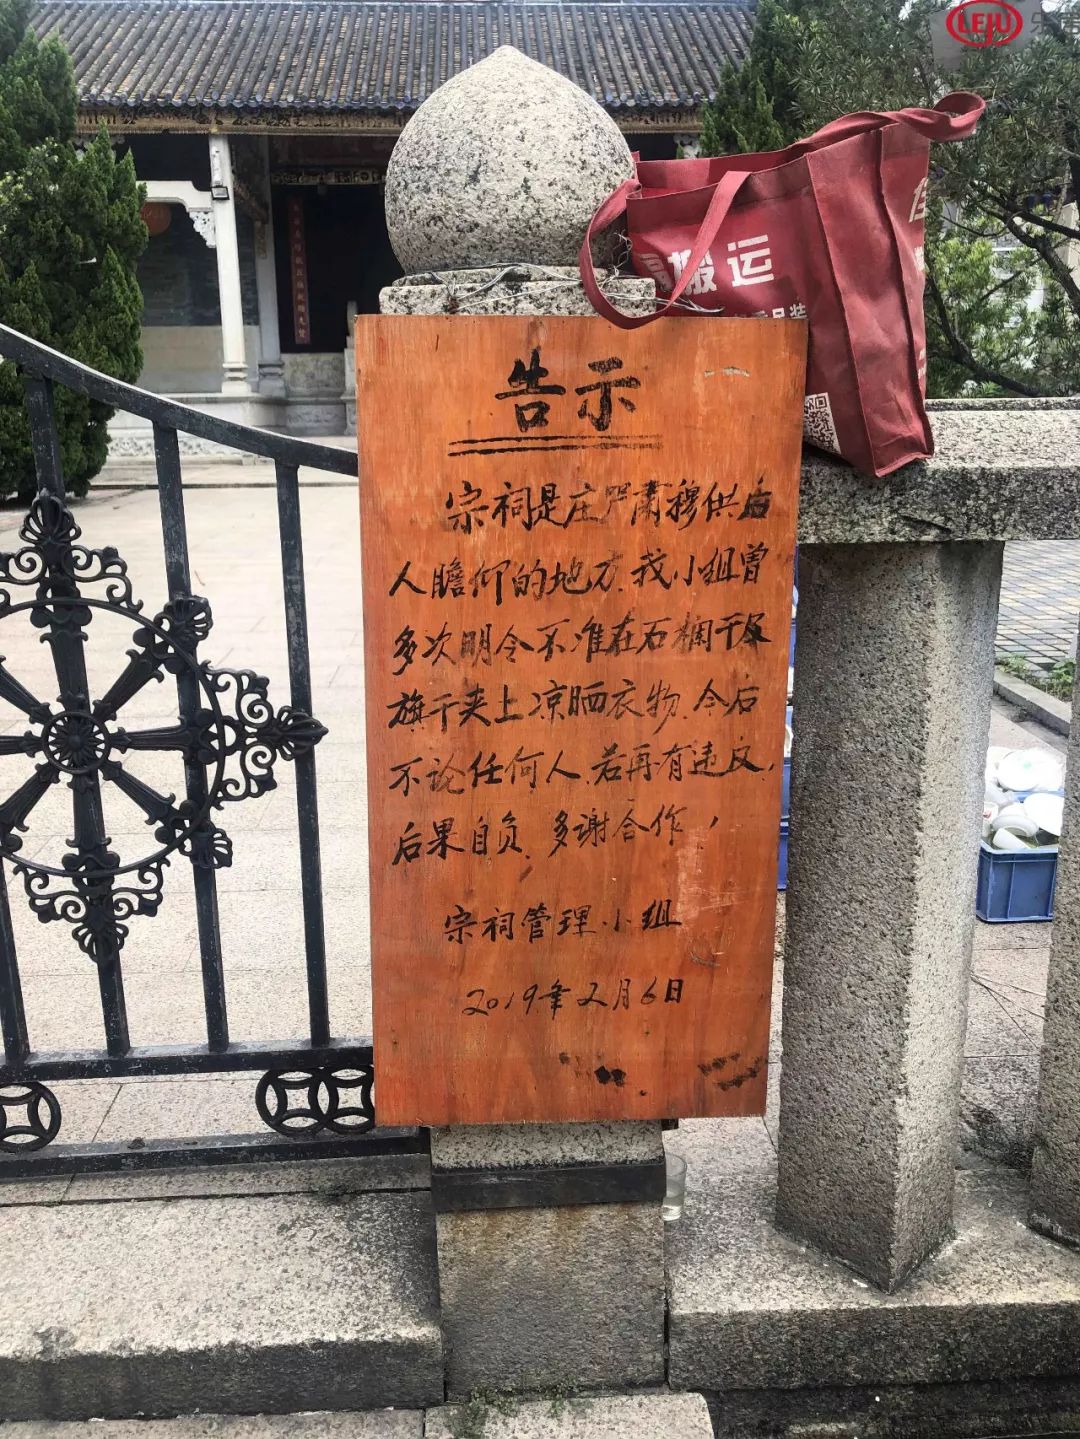 LEJU
搬运
告示
宗祠是庄严肃穆供后
人瞻仰的地方.我小组曾
多次明令不准在石栏干及
旗干夹上凉晒衣物.今后
不论任何人.若再有违反,
后果自负.多谢合作,
宗祠管理小组
2019年2月6日